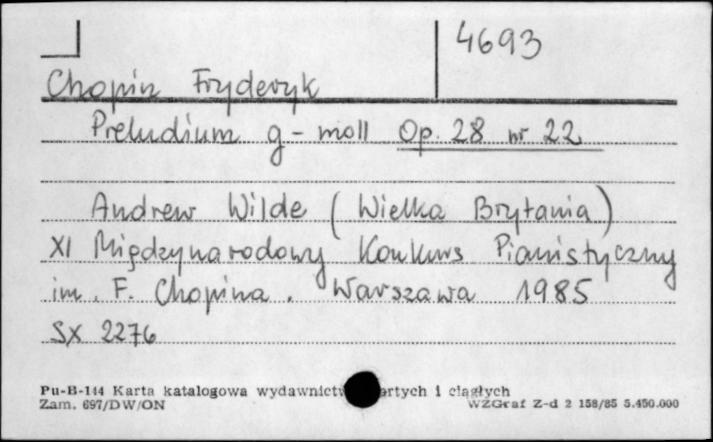 4693
Chopin Fryderyk
Preludium g-moll Op. 28 nr 22
Andrew Wilde (Wielka Brytania)
XI Międzynarodowy Konkurs Pianistyczny
im. F. Chopina. Warszawa 1985
SX 2276
Pu-B-144 Karta katalogowa i ciągłych
Zam. 697/DW/ON WZGraf Z-d 2 158/85 5.450.000